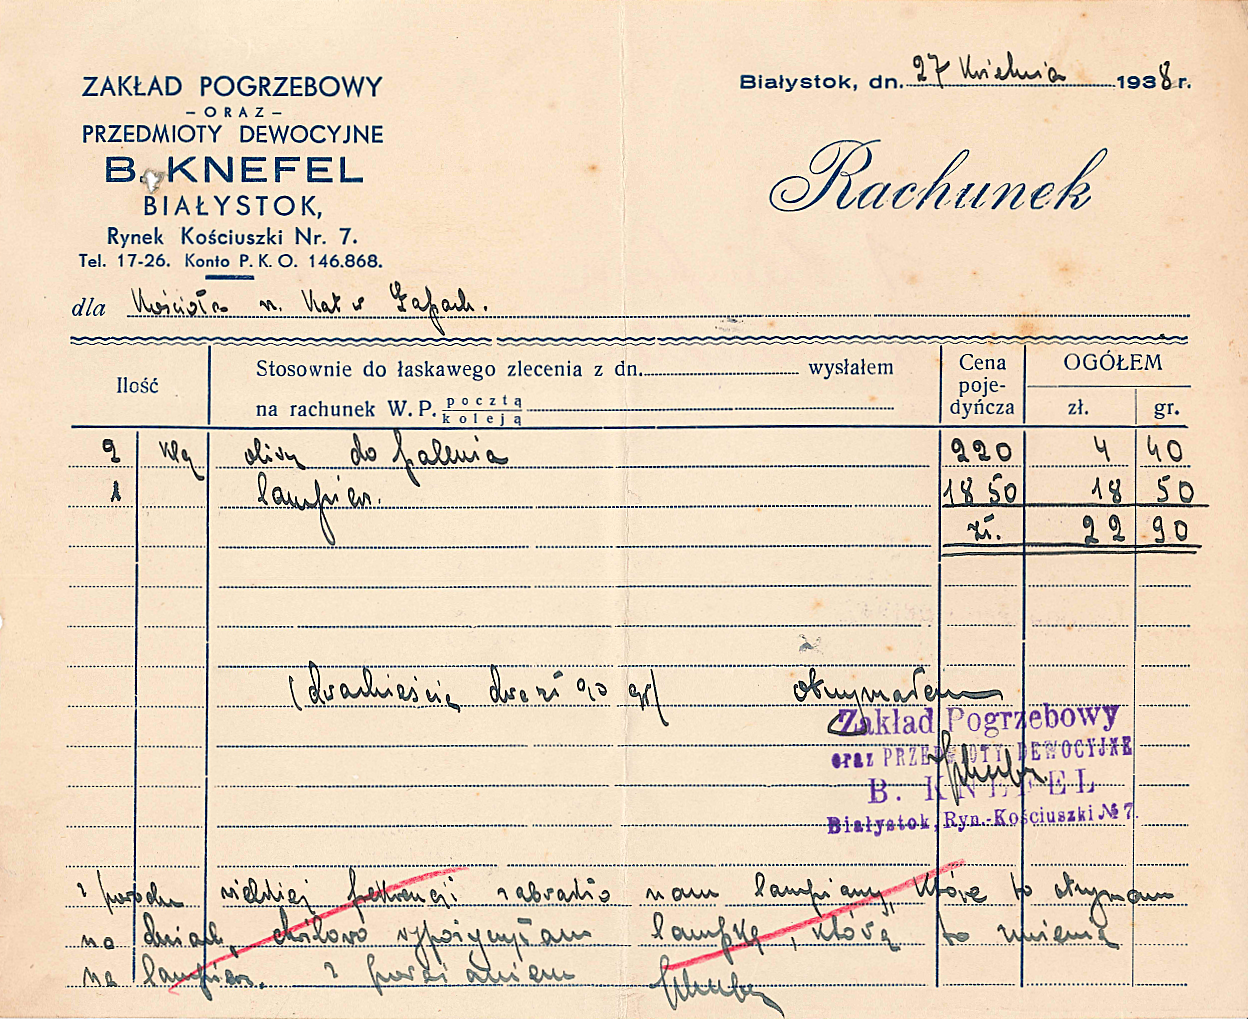 ZAKŁAD POGRZEBOWY
– ORAZ –
PRZEDMIOTY DEWOCYJNE
B. KNEFEL
BIAŁYSTOK,
Rynek Kościuszki Nr. 7.
Tel. 17-26. Konto P. K. O. 146.868.
Białystok, dn. 27 Kwietnia 1938 r.
Rachunek
dla Kościoła n. Kat w Łapach.
Ilość
Stosownie do łaskawego zlecenia z dn. wysłałem
na rachunek W. P. pocztą koleją
Cena poje-dyńcza
OGÓŁEM
zł. gr.
2 klg oliwy do palenia 220 4 40
1 lampion. 18 50 18 50
zł. 22 90
(dwadzieścia dwa zł 90 gr) otrzymałem
Zakład Pogrzebowy
oraz PRZEDMIOTY DEWOCYJNE
B. KNEFEL
Białystok, Ryn.-Kościuszki № 7.
wielkiej frekwencji zabrakło nam lampiony, które to otrzymam
na dniach, chwilowo wypożyczyłam lampkę, którą to zmienię
na lampion.